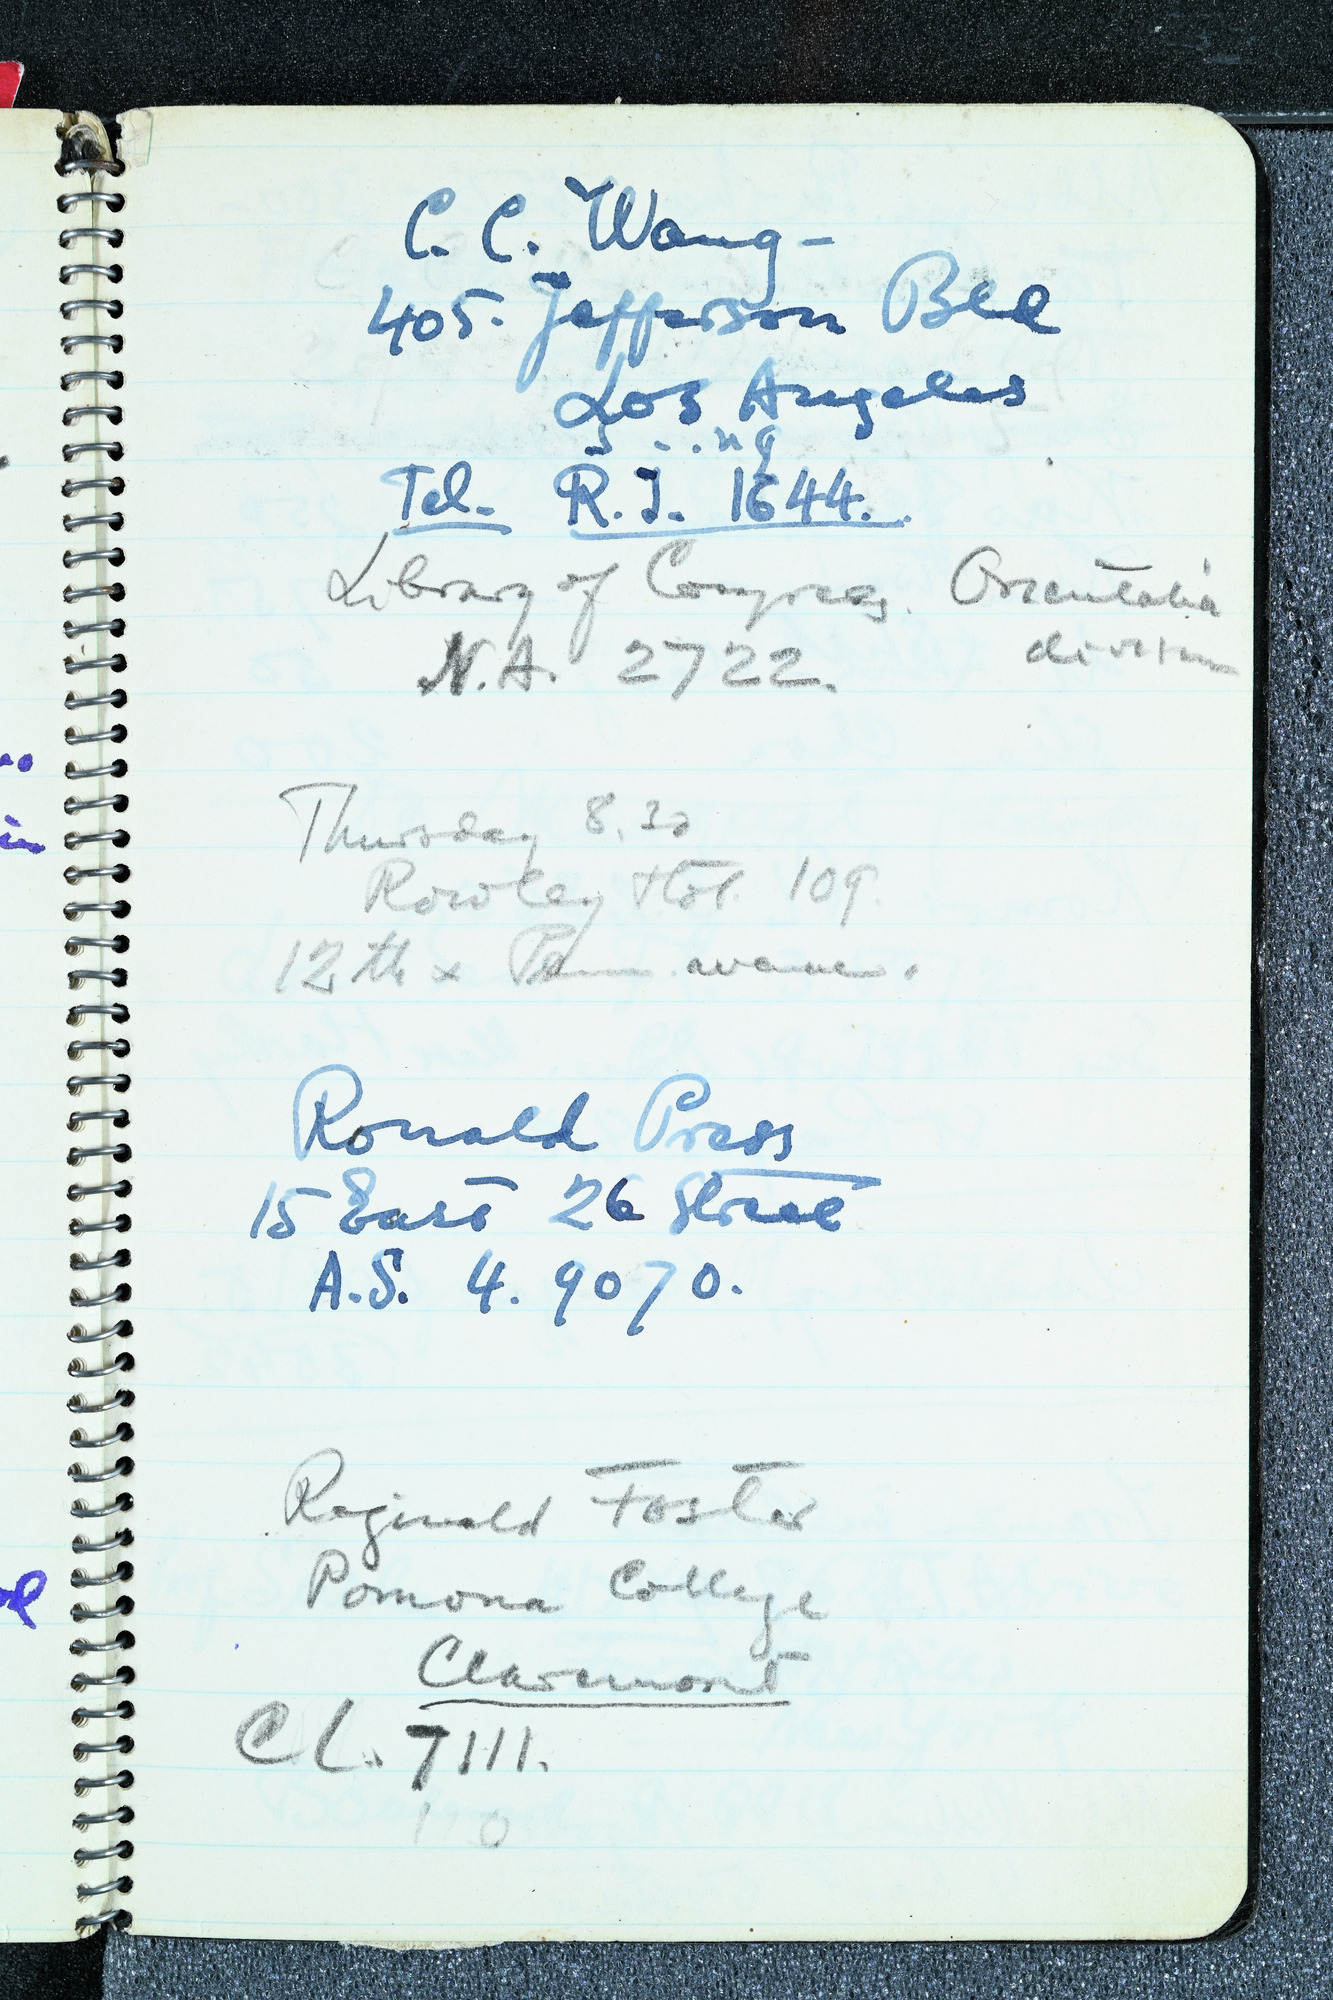 C. C. Wang -
405. Jefferson Bld
Los Angeles
Tel. R.I. 1644.
Library of Congress. Orientalia
division
N.A. 2722.
Thursday 8.30
Rowley Hot. 109.
12th x Penn. avenue.
Ronald Press
15 East 26 Street
A.S. 4. 9070.
Reginald Foster
Pomona College
Claremont
CL. 7111.